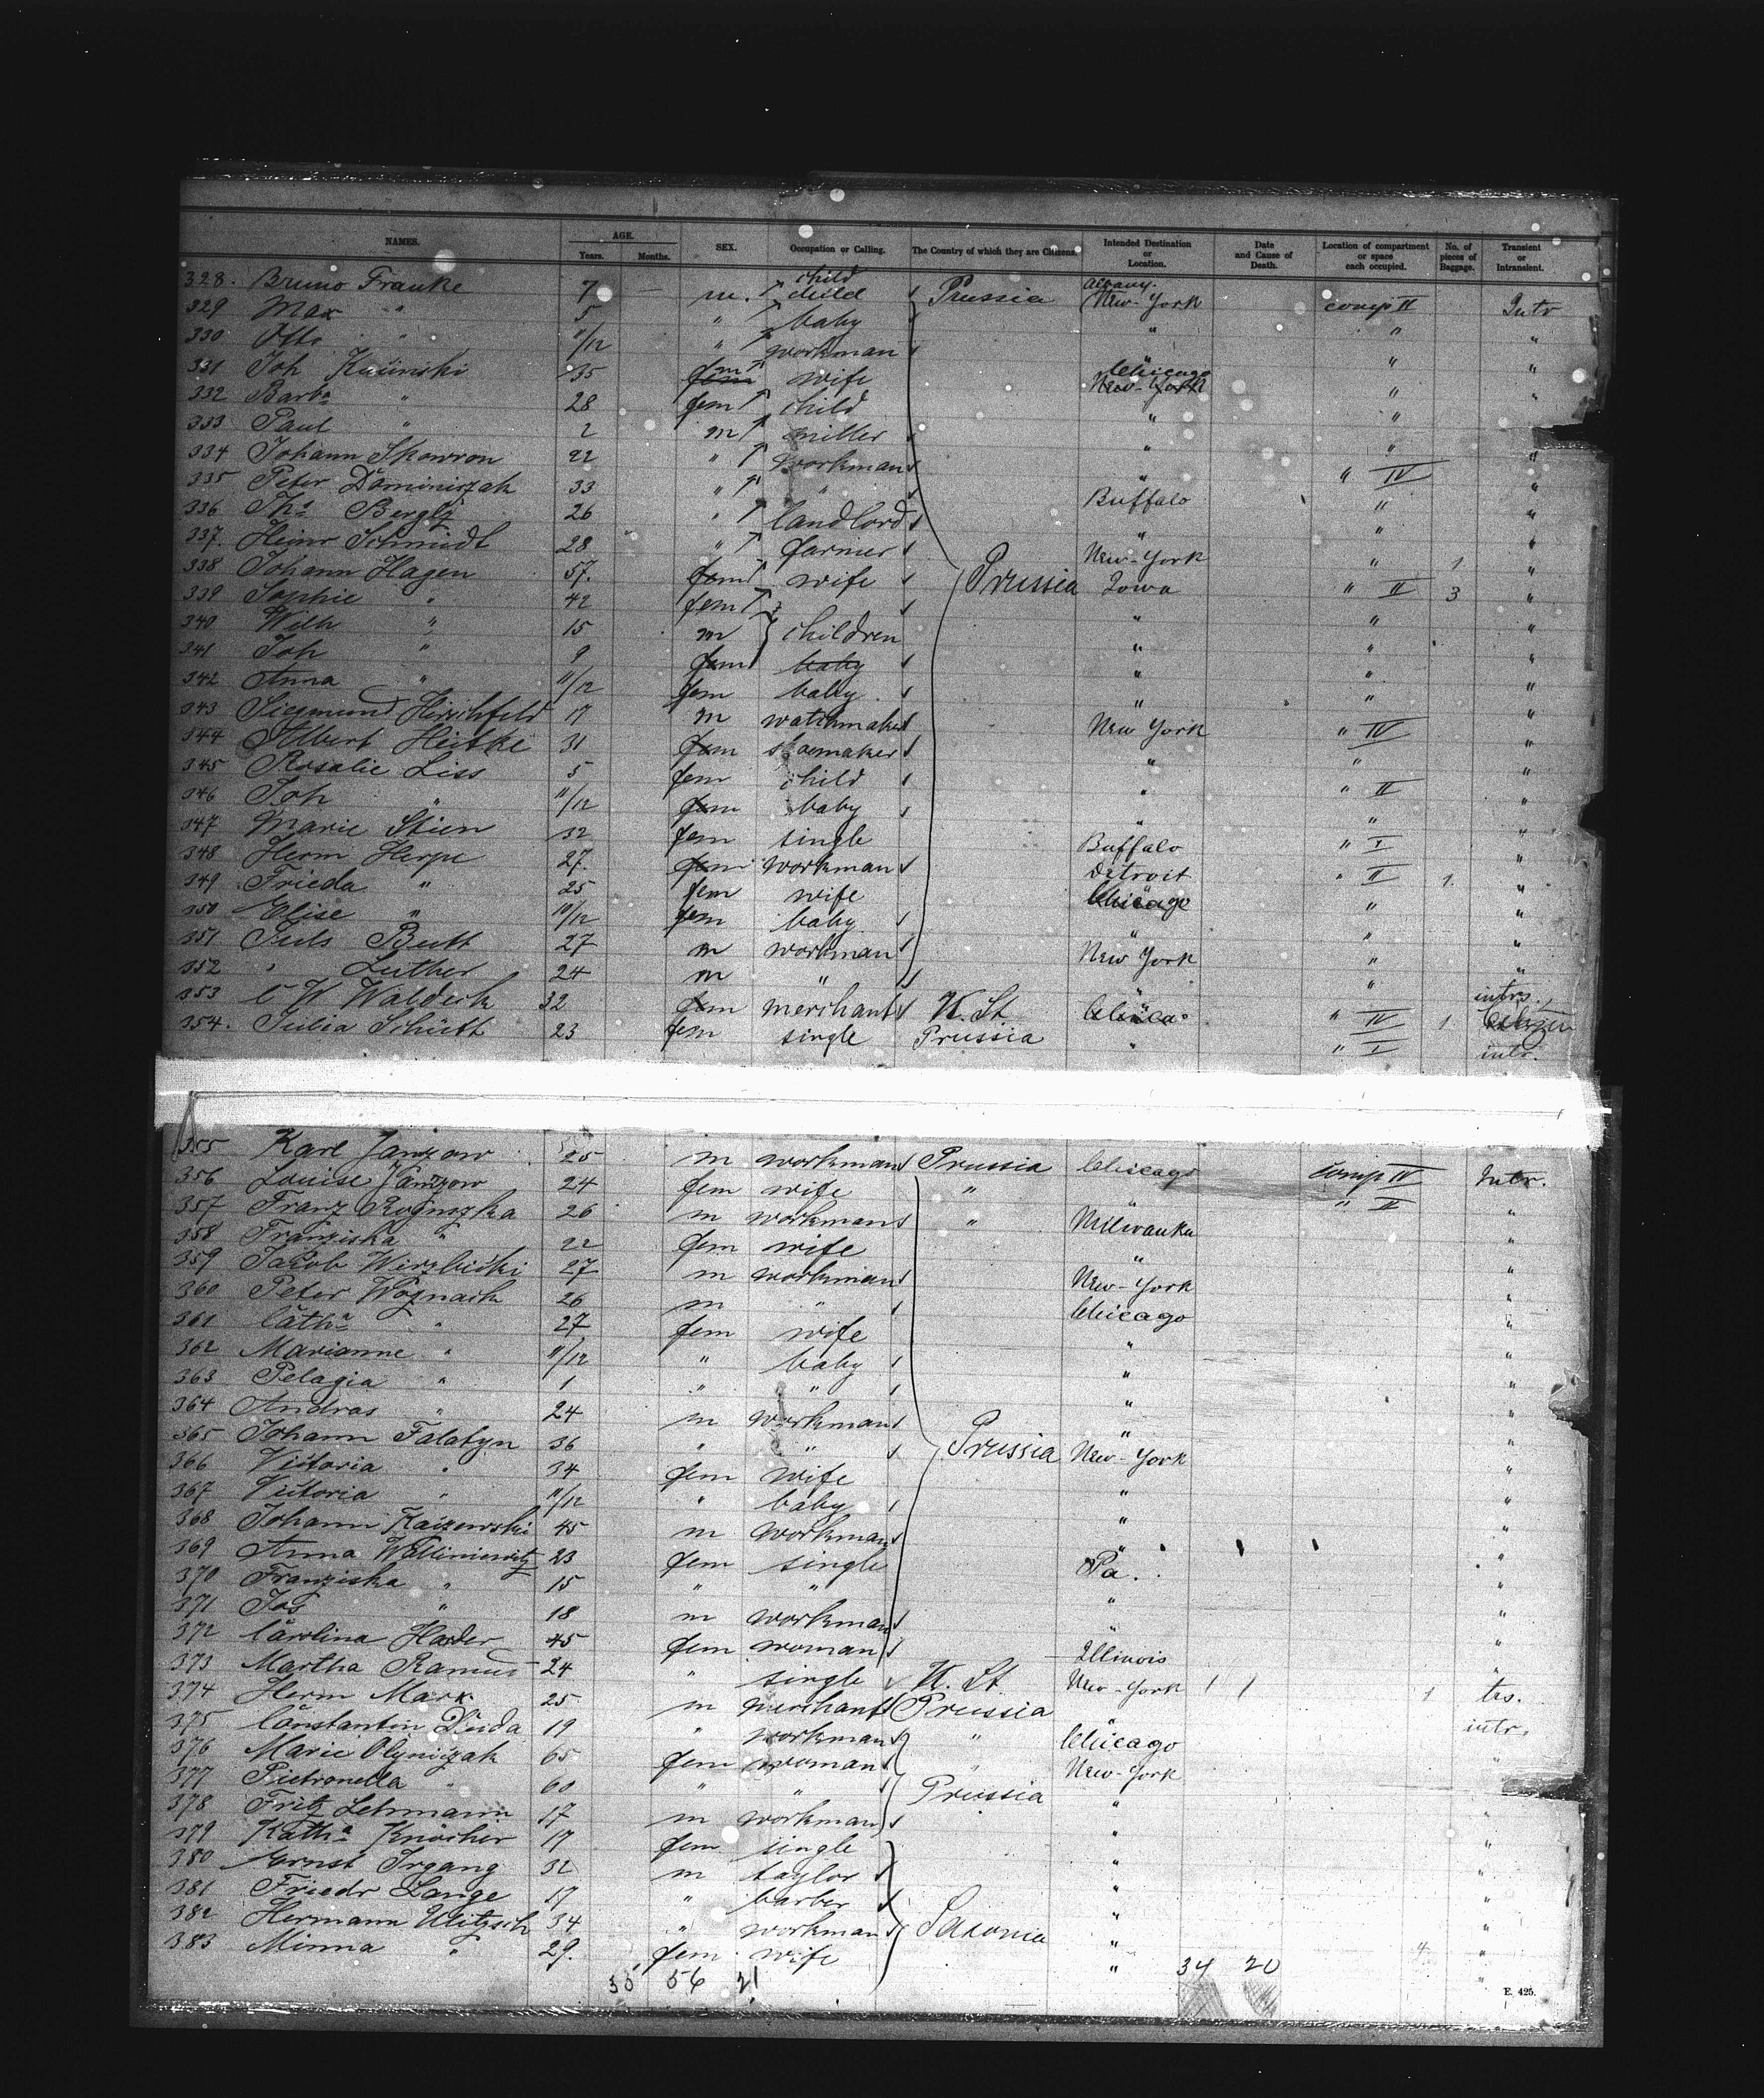 NAMES. AGE. Years. Months. SEX. Occupation or Calling. The Country of which they are Citizens. Intended Destination or Location. Date and Cause of Death. Location of compartment or space each occupied. No. of pieces of Baggage. Transient or Intransient.
328. Bruno Franke 7 — m. child child Prussia Albany. New-York comp II Intr
329 Max " 5 " baby " " "
330 Otto " 11/12 " workman " "
331 Joh Kusinski 35 fem m wife Chicago New-York " "
332 Barba " 28 fem child " " "
333 Paul " 2 m miller " " "
334 Johann Skowron 22 " workman " IV "
335 Peter Dominiszak 33 " " Buffalo " "
336 Tho Bergly 26 " landlord " " "
337. Heinr Schmidt 28 " farmer New-York " 1 "
338 Johann Hagen 57. fem wife Prussia Iowa " II 3 "
339 Sophie " 42 fem " " "
340 Wilh " 15 m children " " "
341 Joh " 9 fem baby " " "
342 Anna " 11/12 fem baby " " "
343 Siegmund Hirschfeld 17 m watchmaker New York " IV "
344 Albert Heitke 31 fem shoemaker " " "
345 Rosalie Liss 5 fem child " " II "
346 Joh " 11/12 fem baby " " "
347 Marie Stien 32 fem single Buffalo " I "
348 Herm Herpe 27. fem workman Detroit " II 1. "
349 Frieda " 25 fem wife Chicago " "
350 Elise " 10/12 fem baby " " "
351 Juls Butt 27 m workman New York " "
352 " Luther 24 m " " "
353 C W Walderk 32 fem merchant U. St Chicao " IV 1 intrs. Citizen
354. Julia Schütt 23 fem single Prussia " " I intr.
355 Karl Janzow 25 m workman Prussia Chicago comp IV Intr.
356 Louise Janzow 24 fem wife " " " II "
357 Franz Rogniszka 26 m workman " Milwaukee "
358 Franziska " 22 fem wife " "
359 Jakob Wirzbicki 27 m workman New-York "
360 Peter Woznack 26 m " Chicago "
361 Catha " 27 fem wife " "
362 Marianne " 11/12 " baby " "
363 Pelagia " 1 " " " "
364 Andras " 24 m workman " "
365 Johann Falatyn 36 " " Prussia New-York "
366 Victoria " 34 fem wife " "
367 Victoria " 11/12 " baby " "
368 Johann Kaizewski 45 m workman " "
369 Anna Walliniewitz 23 fem single Pa. "
370 Franziska " 15 " " " "
371 Jos " 18 m workman " "
372 Carolina Harder 45 fem woman Illinois "
373 Martha Ramus 24 " single U. St New-York 1 trs.
374 Herm Mark 25 m merchant Prussia " intr.
375 Constantin Duida 19 " workman " Chicago "
376 Marie Olyniczak 65 fem woman New-York "
377 Pietronella " 60 " " Prussia " "
378 Fritz Lehmann 17 m workman " "
379 Katha Knöcher 17 fem single " "
380 Ernst Irgang 32 m taylor " "
381 Friedr Lange 17 " barber " "
382 Hermann Ulitzsch 34 " workman Saxonia " "
383 Minna " 29. fem wife " 4. "
35 56 21 34 20
E. 425.